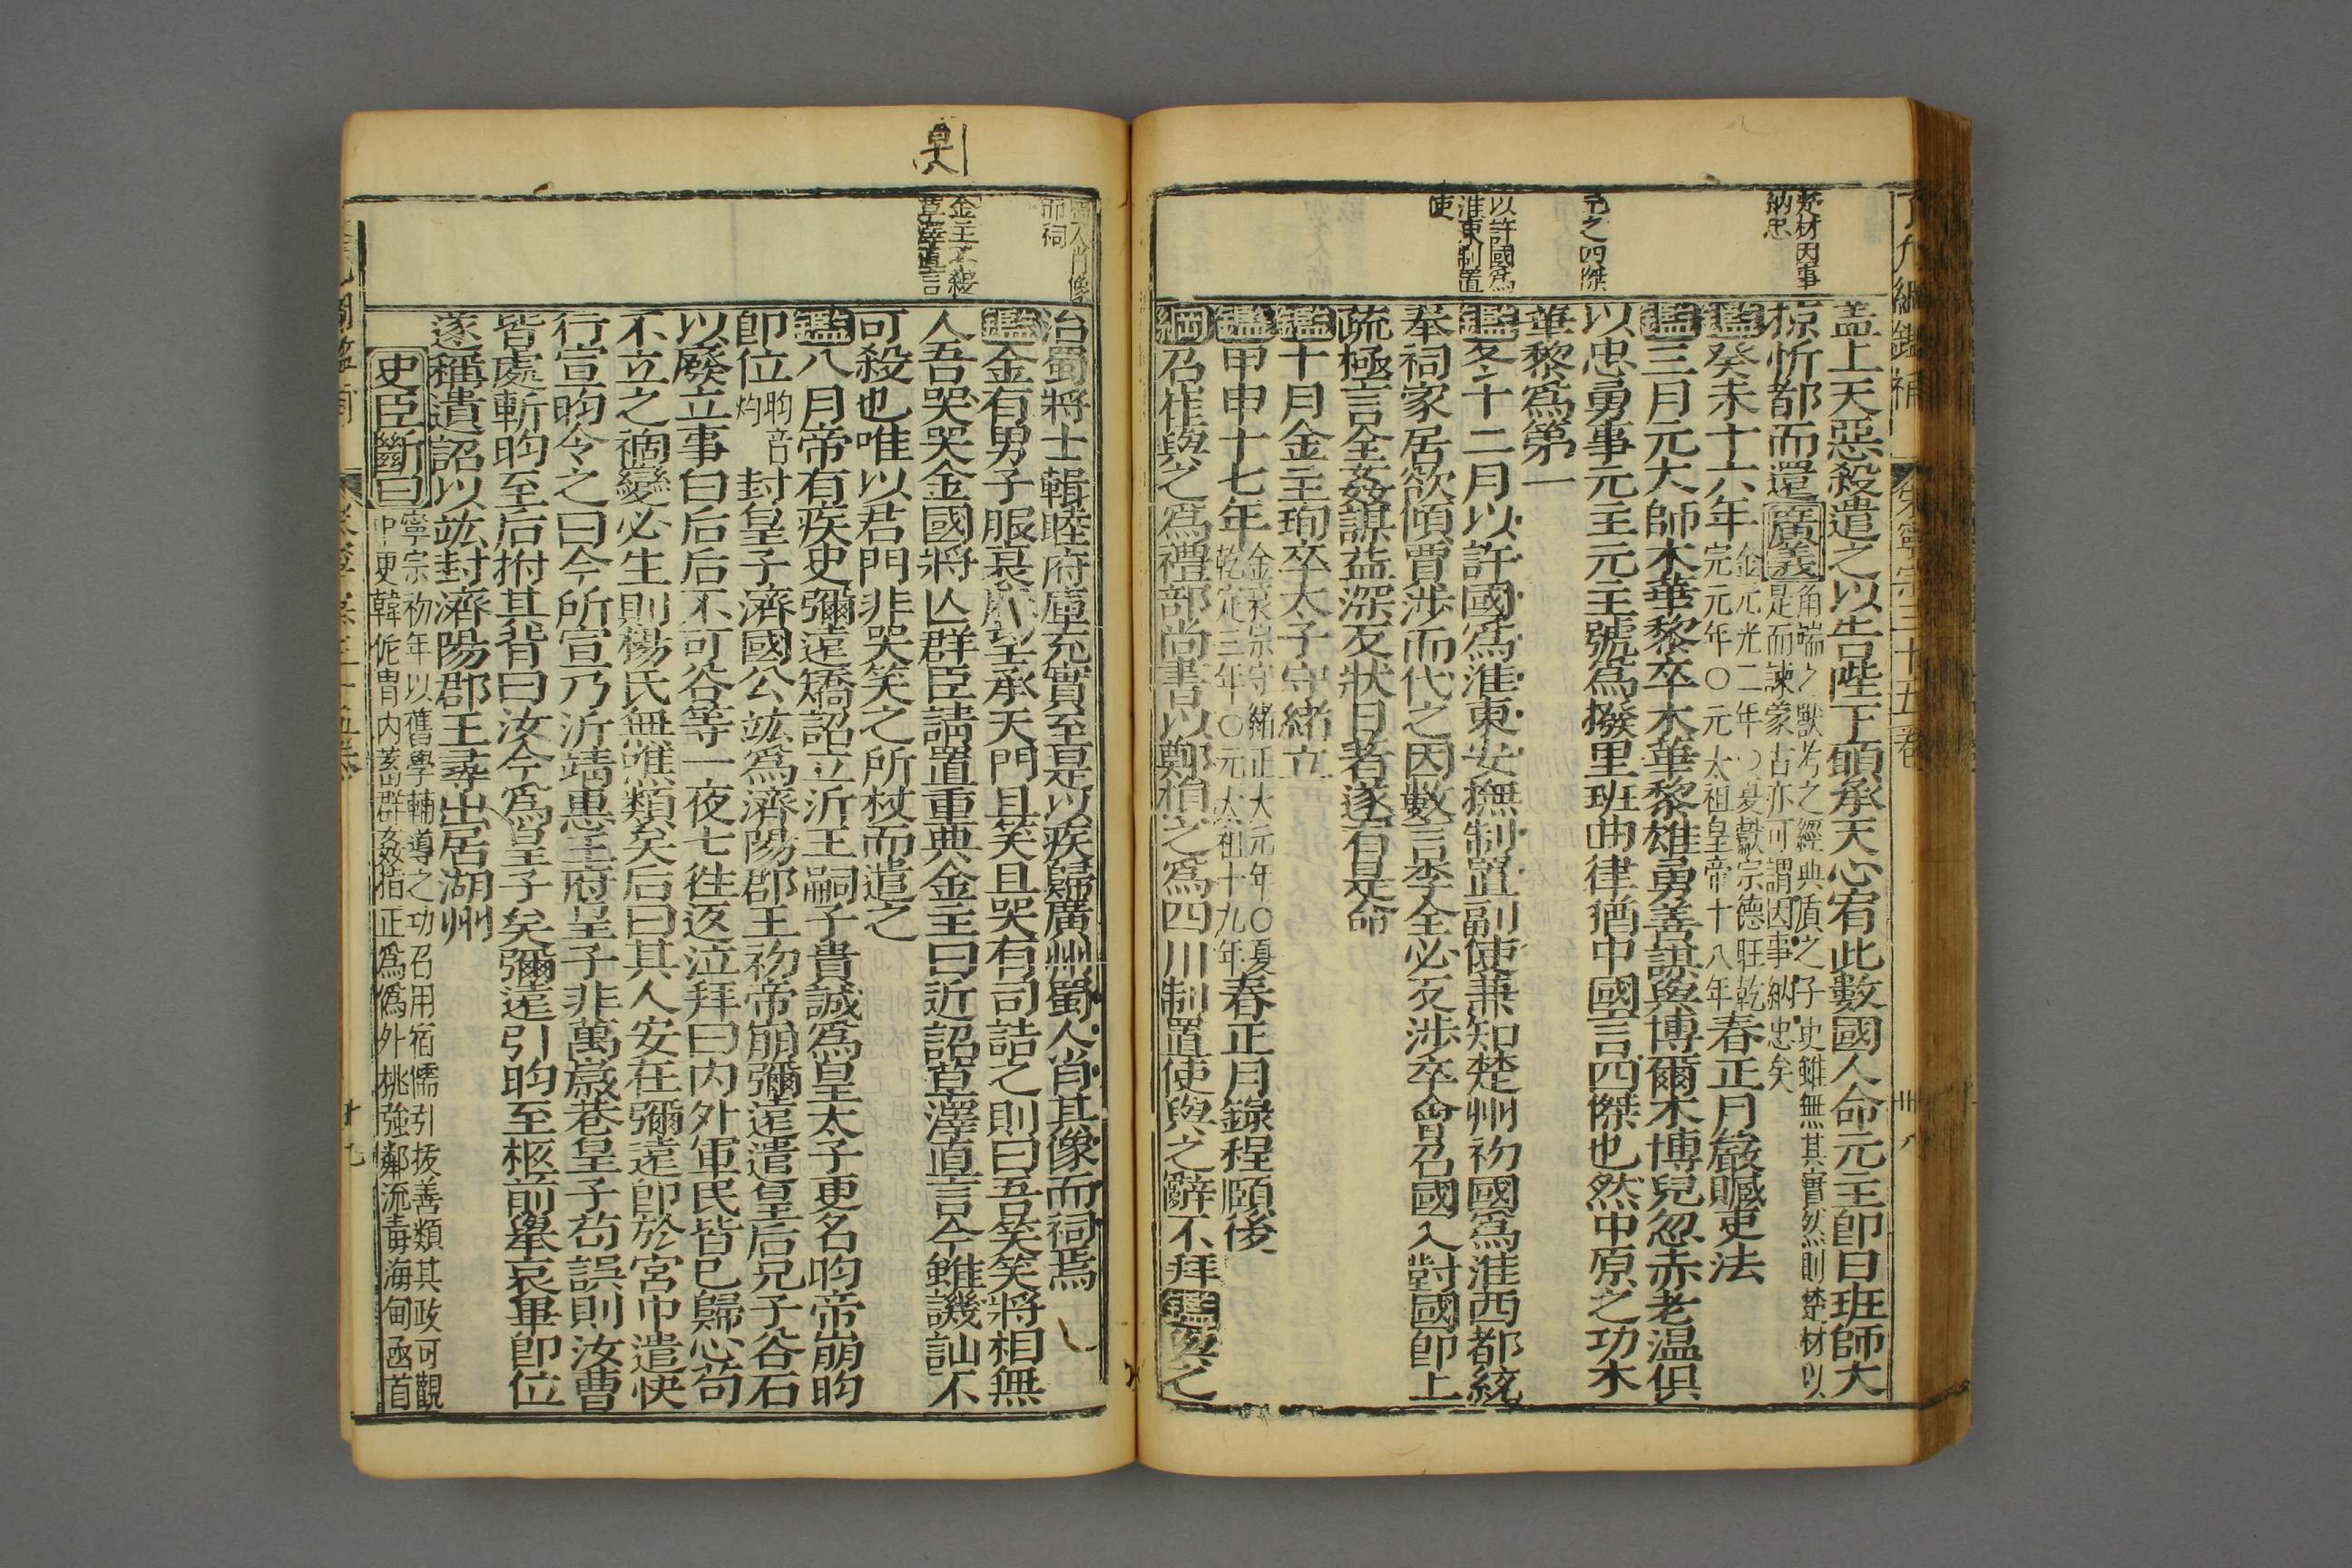 楚材因事
納忠
元之四傑
以許國爲
淮東制置
使
宋寧宗三十五卷
卅八
盖上天惡殺遣之以告陛下頭承天心宥此數國人命元主卽日班師大
掠忻都而還廣義角端之獸考之經典質之子史雖無其實然則楚材以
是而諫蒙古亦可謂因事納忠矣
鑑癸未十六年金元光二年○夏獻宗德旺乾
定元年○元太祖皇帝十八年春正月嚴贓吏法
鑑三月元大師木華黎卒木華黎雄勇善謀與博爾木博兒忽赤老温俱
以忠勇事元主元主號爲撥里班曲律猶中國言四傑也然中原之功木
華黎爲第一
鑑冬十二月以許國爲淮東安撫制置副使兼知楚州初國爲淮西都統
奉祠家居欲傾賈涉而代之因數言李全必反涉卒會召國入對國卽上
疏極言全姦謀益深反狀日著遂有是命
鑑十月金主珣卒太子守緒立
鑑甲申十七年金哀宗守緒正大元年○夏
乾定三年○元太祖十九年春正月錄程頤後
綱召崔與之爲禮部尚書以鄭損之爲四川制置使與之辭不拜鑑與之
而祠
金主不殺
草澤直言
治蜀將士輯睦府庫充實至是以疾歸廣州蜀人肖其像而祠焉
鑑金有男子服哀麻望承天門且笑且哭有司詰之則曰吾笑笑將相無
人吾哭哭金國將亾群臣請置重典金主曰近詔草澤直言今雖譏訕不
可殺也唯以君門非哭笑之所杖而遣之
鑑八月帝有疾史彌遠矯詔立沂王嗣子貴誠爲皇太子更名昀帝崩昀
卽位昀音
灼封皇子濟國公竑爲濟陽郡王初帝崩彌遠遣皇后兄子谷石
以廢立事白后后不可谷等一夜七徃返泣拜曰内外軍民皆已歸心苟
不立之禍變必生則楊氏無噍類矣后曰其人安在彌遠卽於宮中遣快
行宣昀令之曰今所宣乃沂靖惠王府皇子非萬歲巷皇子苟誤則汝曹
皆處斬昀至后拊其背曰汝今爲皇子矣彌遠引昀至柩前舉哀畢卽位
遂稱遺詔以竑封濟陽郡王尋出居湖州
史臣斷曰寧宗初年以舊學輔導之功召用宿儒引拔善類其政可觀
中更韓侂冑内蓄群姦指正爲僞外挑強鄰流毒海甸函首